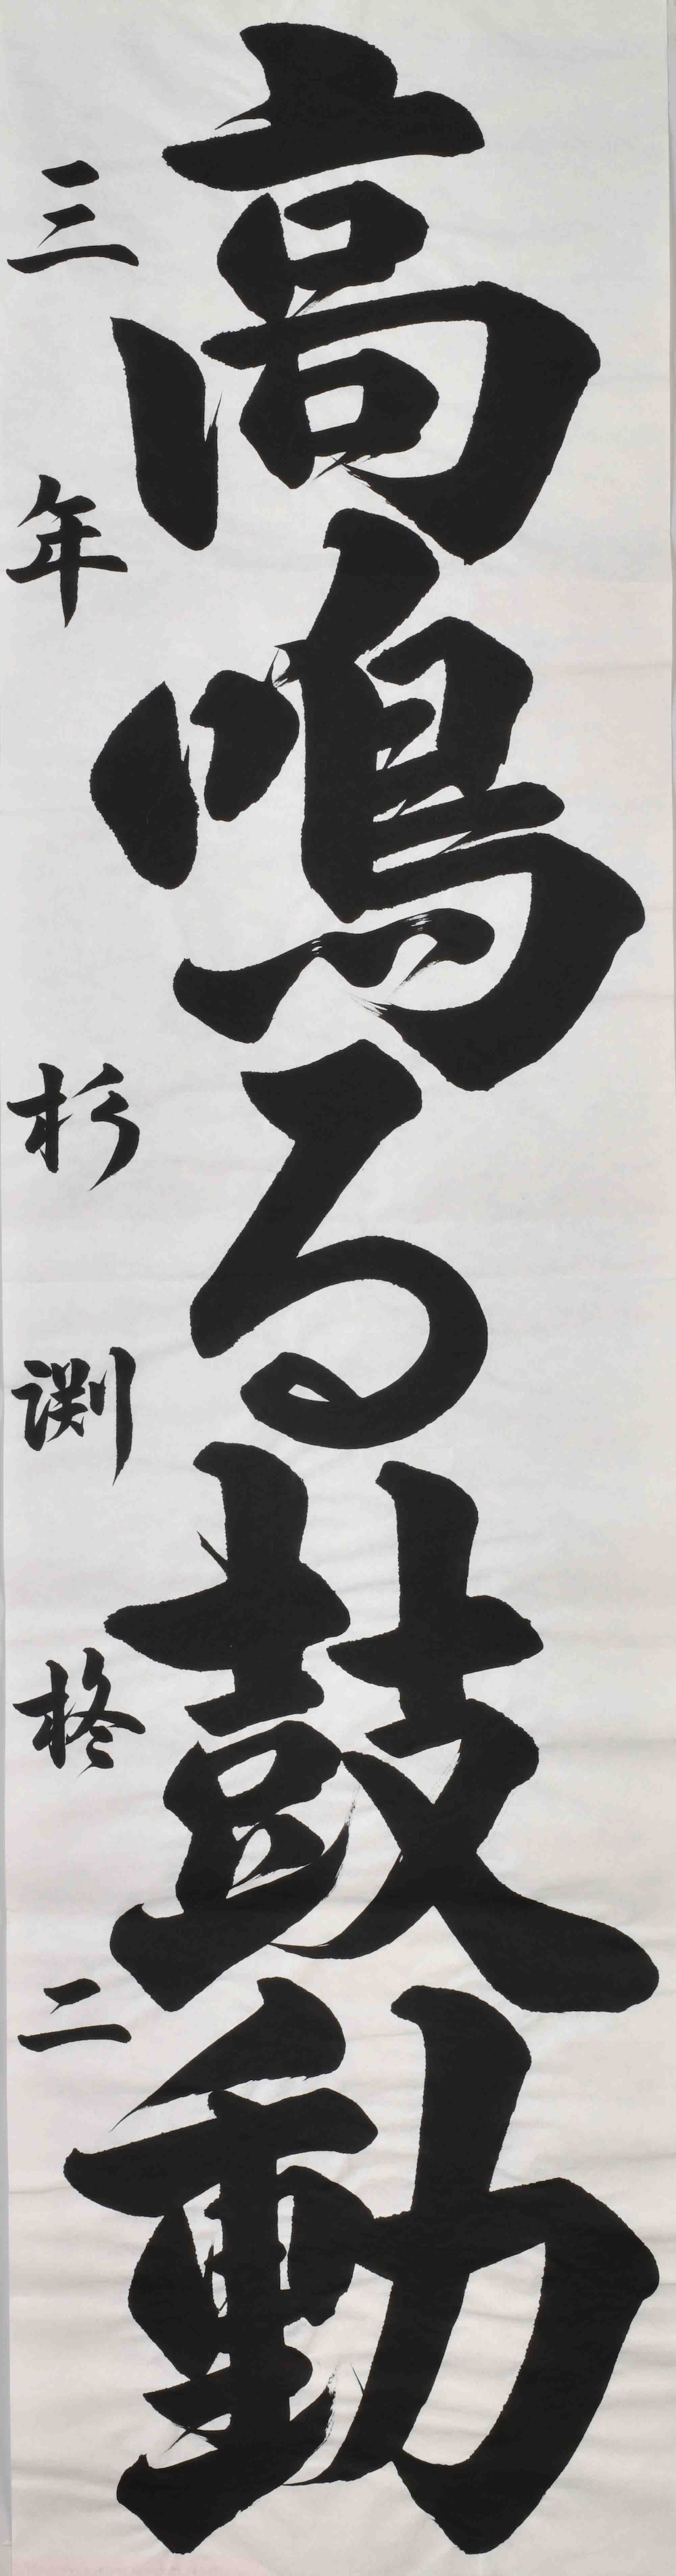 高鳴る鼓動
三年 杉渕柊二